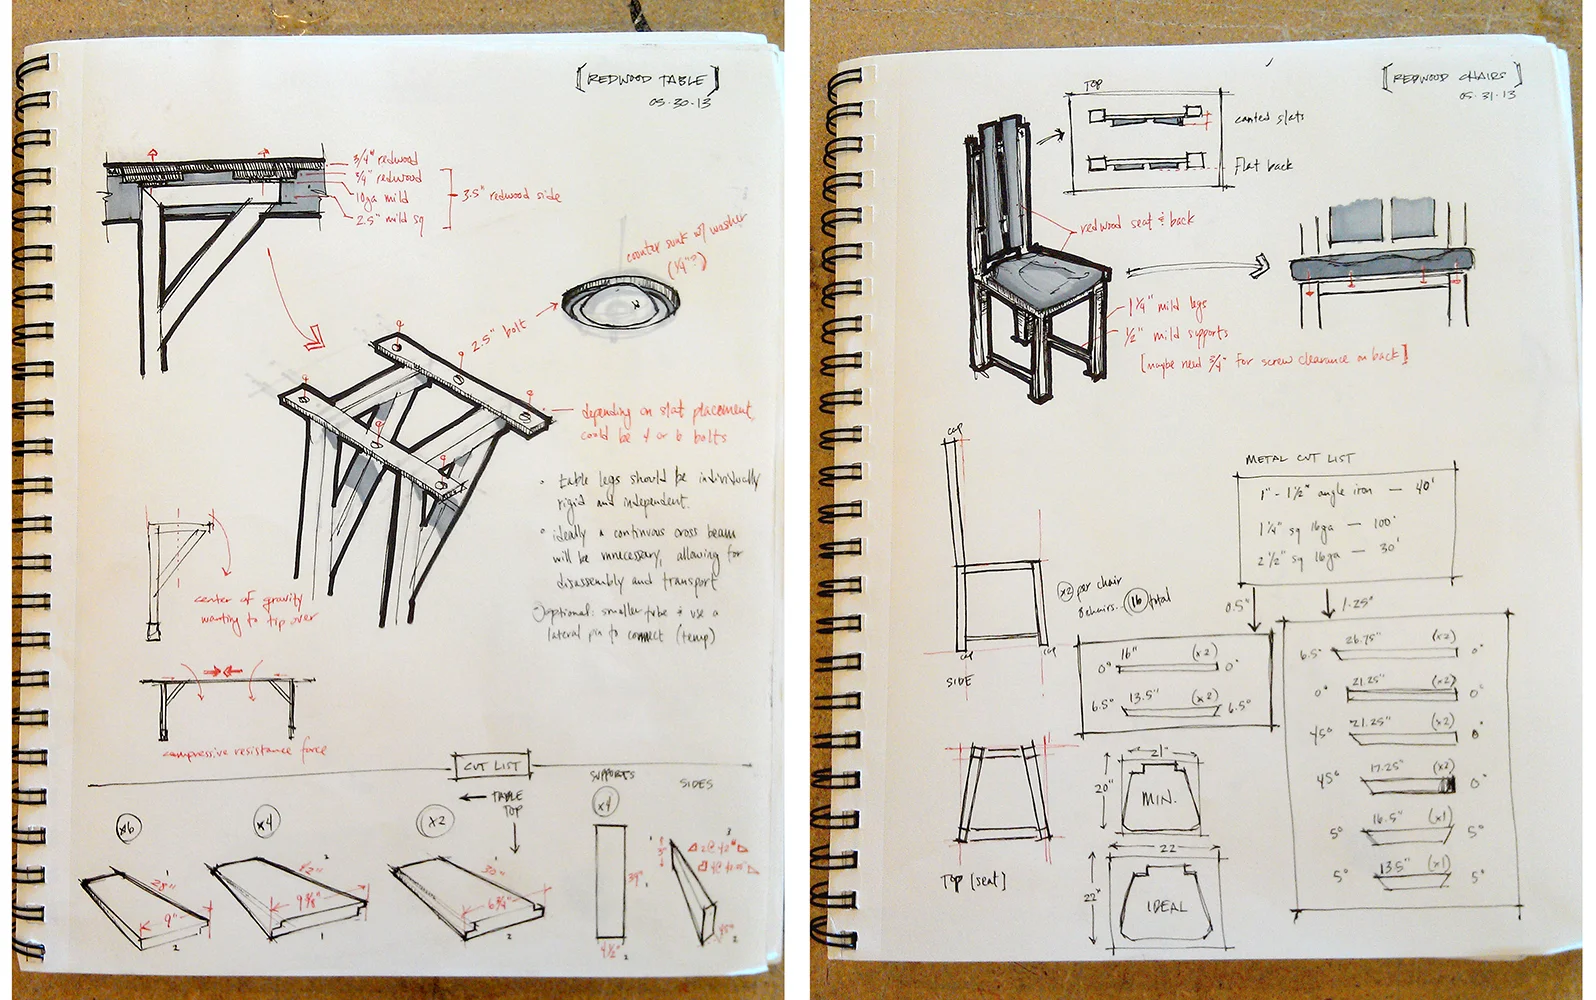 [REDWOOD TABLE]
05·30·13
3/4" redwood
3/4" redwood
10ga mild
2.5" mild sq
3.5" redwood side
counter sunk w/ washer
(1/4"?)
2.5" bolt
depending on slat placement,
could be 4 or 6 bolts
• table legs should be individually
rigid and independent.
• ideally a continuous cross beam
will be unnecessary, allowing for
disassembly and transport
optional: smaller tube & use a
lateral pin to connect (temp)
center of gravity
wanting to tip over
compressive resistance force
CUT LIST
← TABLE
TOP
SUPPORTS
SIDES
x6
x4
x2
x4
28"
9"
9 3/8"
30"
6 3/4"
39"
4 1/2"
3"
45°
[REDWOOD CHAIRS]
05·31·13
TOP
canted slats
Flat back
redwood seat & back
1 1/4" mild legs
1/2" mild supports
[maybe need 3/4" for screw clearance on back]
cap
cap
cap
SIDE
x2 per chair
8 chairs. 16 total
METAL CUT LIST
1" - 1 1/2" angle iron — 40'
1 1/4" sq 16ga — 100'
2 1/2" sq 16ga — 30'
0.5"
1.25"
16" (x2)
0° 0°
13.5" (x2)
6.5° 6.5°
26.75" (x2)
6.5° 0°
21.25" (x2)
0° 0°
21.25" (x2)
45° 0°
17.25" (x2)
45° 0°
16.5" (x1)
5° 5°
13.5" (x1)
5° 5°
TOP [seat]
21"
20"
MIN.
22
22"
IDEAL